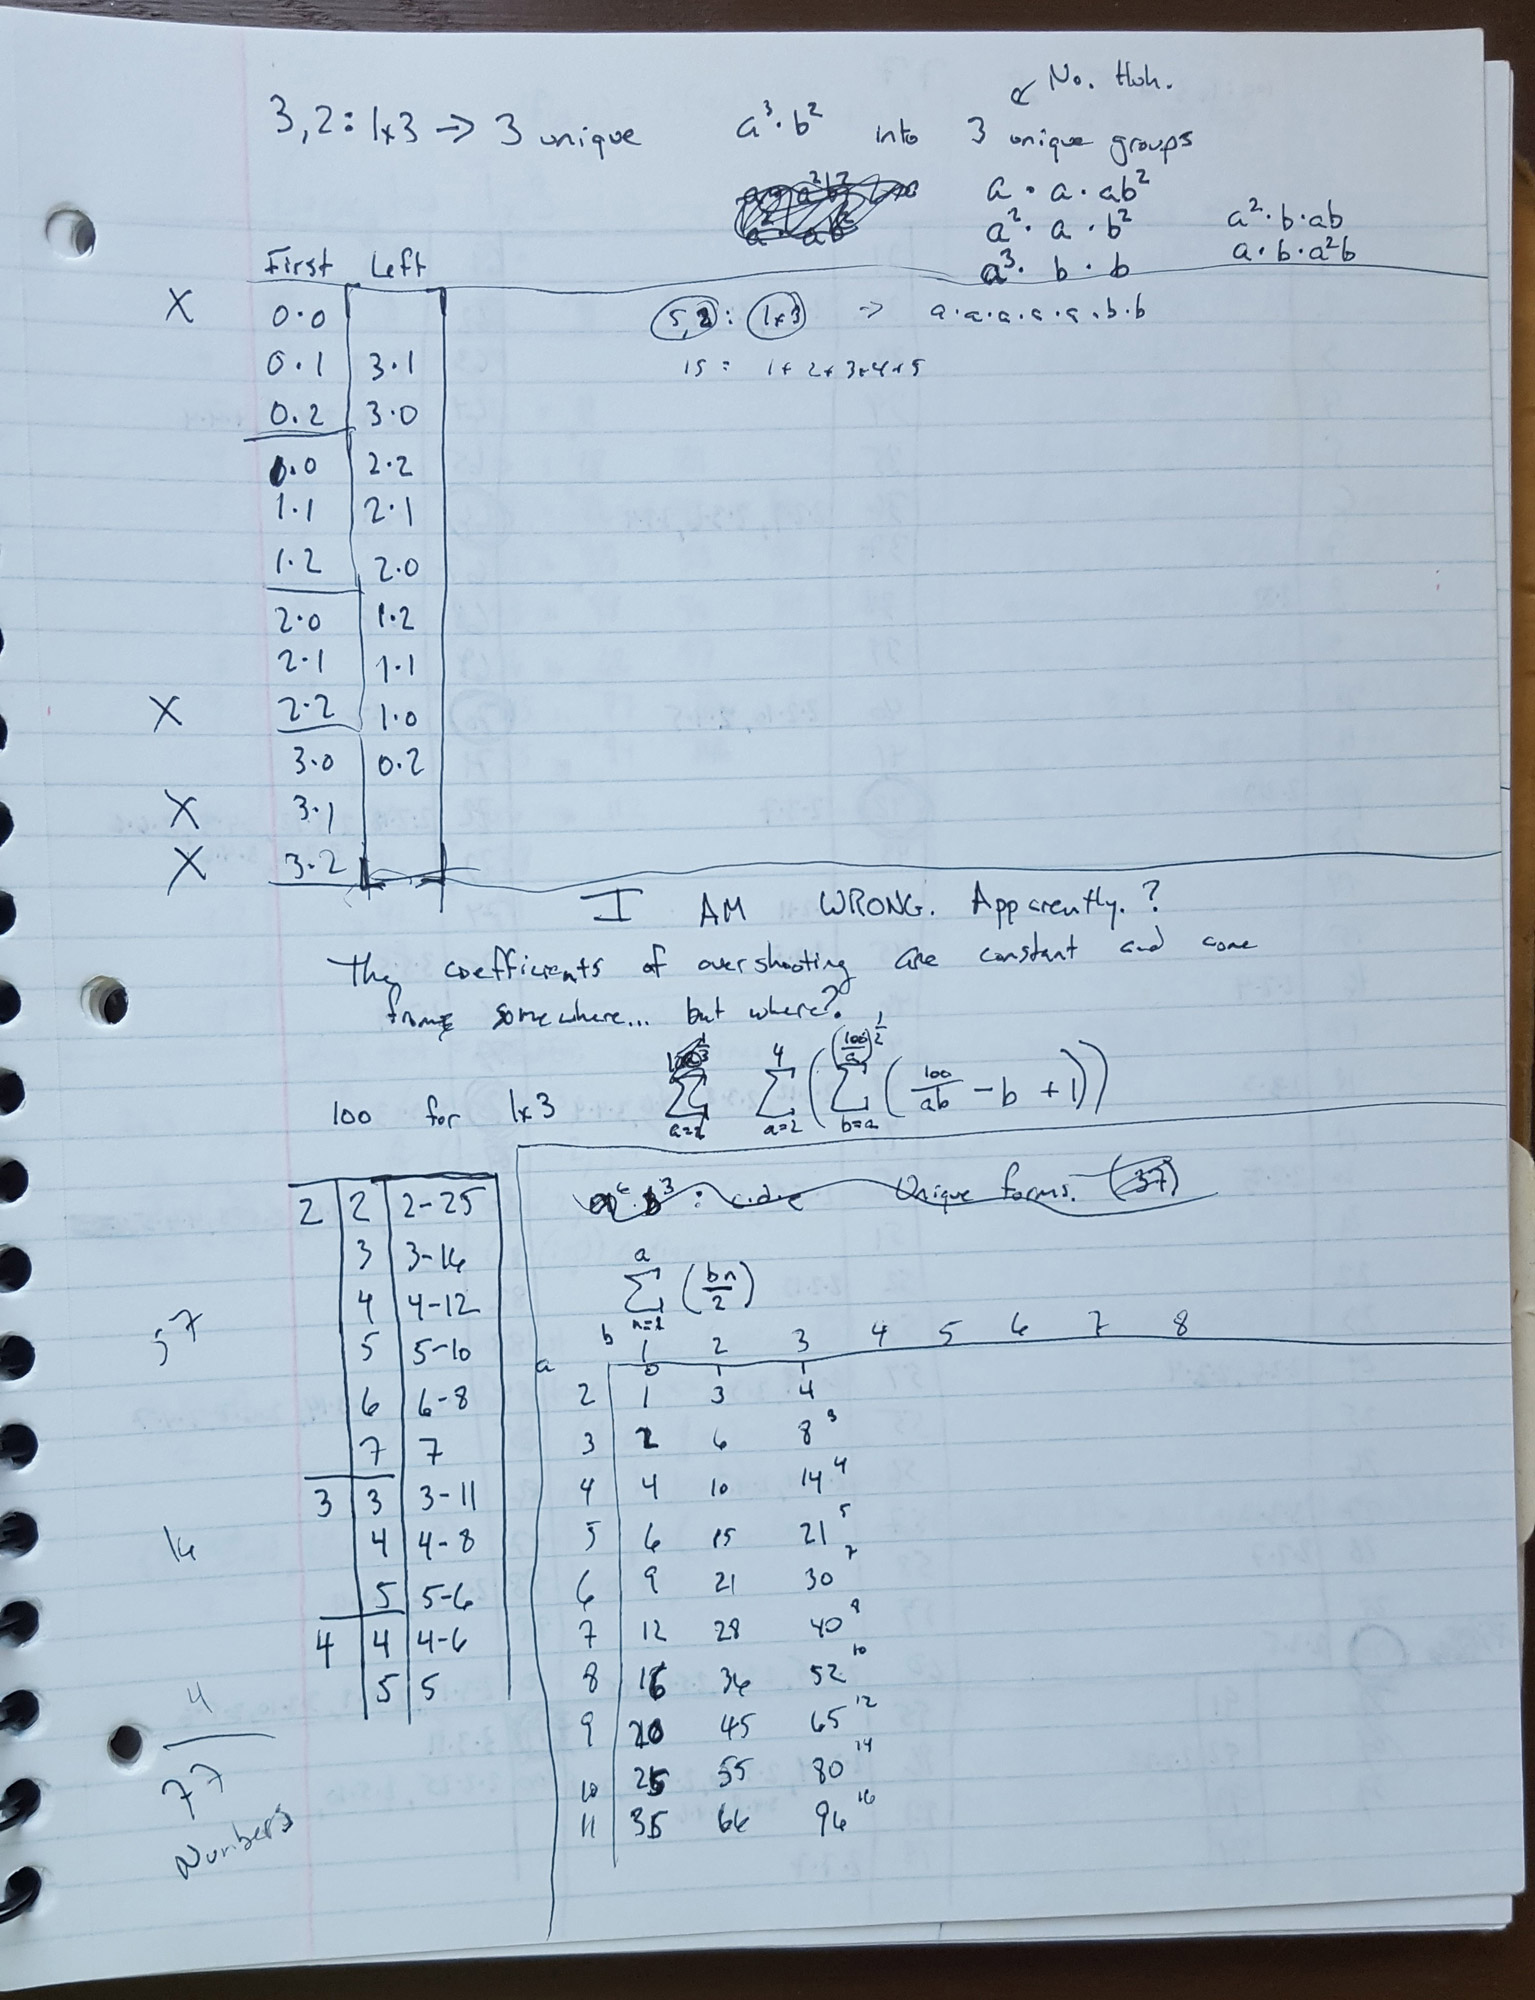 No. Huh.
3,2: 1x3 → 3 unique a³·b² into 3 unique groups
a · a · ab²
a² · a · b² a²·b·ab
a³ · b · b a·b·a²b
First Left
X 0·0
0·1 3·1
0·2 3·0
1·0 2·2
1·1 2·1
1·2 2·0
2·0 1·2
2·1 1·1
X 2·2 1·0
3·0 0·2
X 3·1
X 3·2
5,2: 1x3 → a·a·a·a·a·b·b
15 = 1+2+3+4+5
I AM WRONG. Apparently.?
The coefficients of overshooting are constant and come
from somewhere... but where?
100 for 1x3 4 Σ a=2 ( (100/a)^½ Σ b=a ( 100/ab - b + 1))
2 2 2-25
3 3-16
4 4-12
57 5 5-10
6 6-8
7 7
3 3 3-11
16 4 4-8
5 5-6
4 4 4-6
4 5 5
77
Numbers
a⁶·b³ : c·d·e Unique forms. (37)
a Σ n=1 (bn/2)
b 1 2 3 4 5 6 7 8
a 0 1 1
2 1 3 4
3 2 6 8 3
4 4 10 14 4
5 6 15 21 5
6 9 21 30 7
7 12 28 40 8
8 16 36 52 10
9 20 45 65 12
10 25 55 80 14
11 35 66 96 16